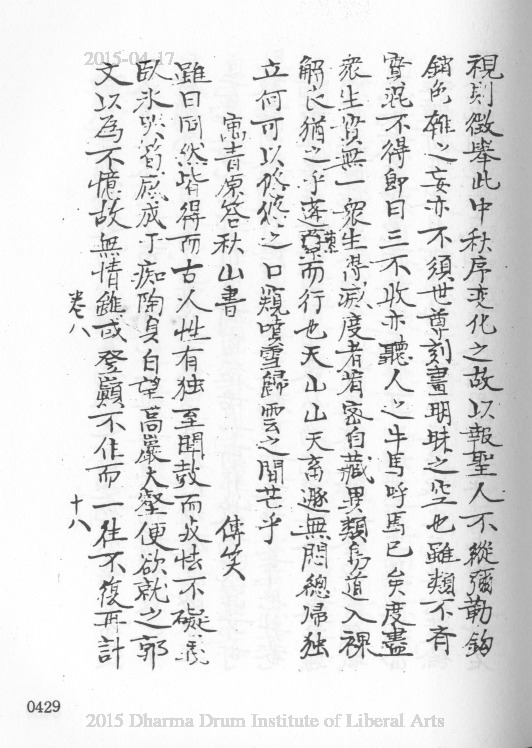 2015-04-17
視則徵舉此中秋序变化之故以報聖人不縱彌勒鈎
銷色雜之妄亦不須世尊刻畫明珠之空也雖類不齊
實混不得即曰三不收亦聽人之牛馬呼馬已矣度盡
衆生實無一衆生得滅度者若密自藏異類易道入裸
解衣猶之乎蓬累而行也天山山天畜遯無悶總歸独
立何可以悠悠之口窺噴雪歸雲之閒芒乎
寓青原答秋山書 傳笑
雖曰同然皆得而古人性有独至聞鼓而戎怯不礙
臥氷哭筍庶成丁痴陶貞白望高巖大壑便欲就之郭
文以為不憶故無情雖或登巔不作而一往不復再計
卷八 十八
0429
2015 Dharma Drum Institute of Liberal Arts